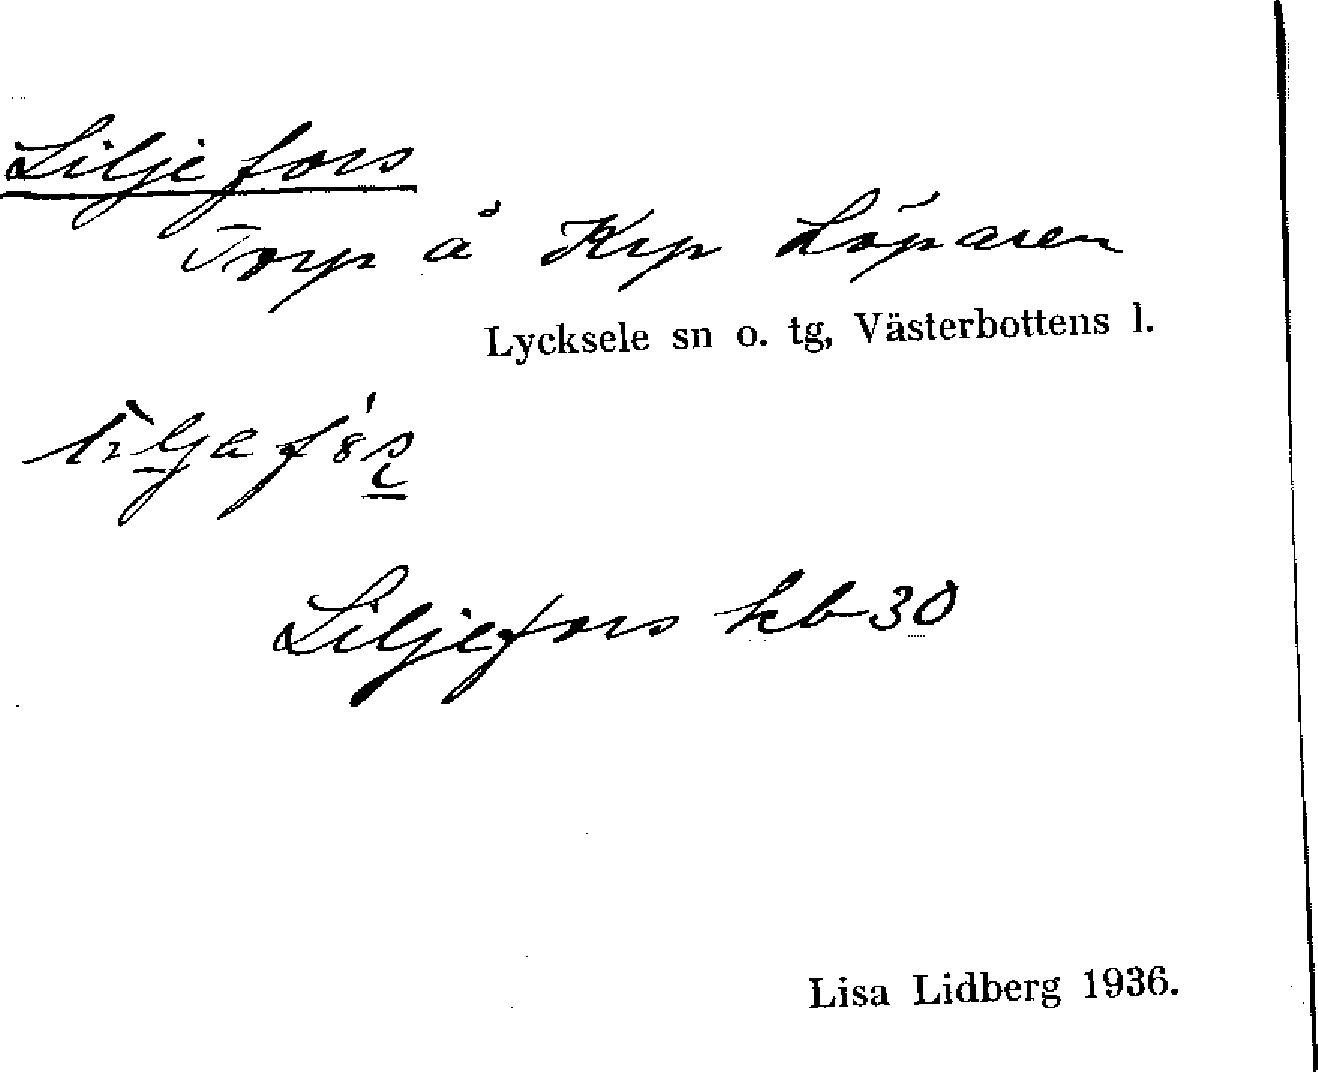 Liljefors
Torp å Krp Löparen
Lycksele sn o. tg, Västerbottens l.
Liljefors kb 30
Lisa Lidberg 1936.